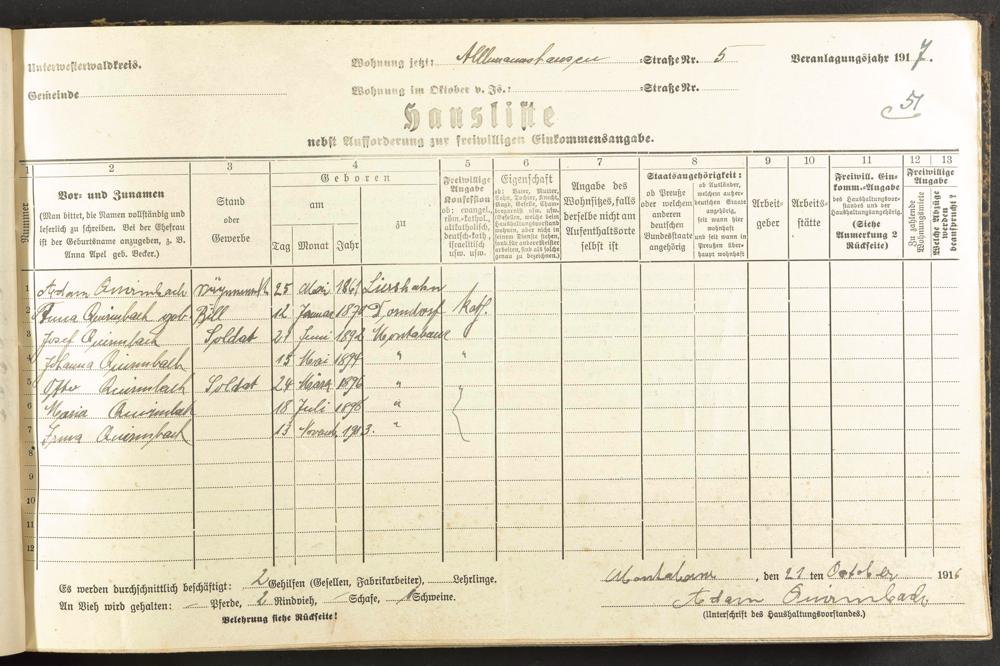 Unterwesterwaldkreis.
Wohnung jetzt: Allmannshausen =Straße Nr. 5
Veranlagungsjahr 1917.
Gemeinde
Wohnung im Oktober v. Js.: =Straße Nr.
51
Hausliste
nebst Aufforderung zur freiwilligen Einkommensangabe.
1 2 3 4 5 6 7 8 9 10 11 12 13
Nummer
Vor- und Zunamen
(Man bittet, die Namen vollständig und
leserlich zu schreiben. Bei der Ehefrau
ist der Geburtsname anzugeben, z. B.
Anna Apel geb. Becker.)
Stand
oder
Gewerbe
Geboren
am
zu
Tag Monat Jahr
Freiwillige
Angabe
Konfession
ob: evangel.,
röm.-kathol.,
altkatholisch,
deutsch-kath.,
israelitisch
usw. usw.
Eigenschaft
ob: Vater, Mutter,
Sohn, Tochter, Knecht,
Magd, Geselle, Cham-
bregarnist usw. usw.
(Gesellen, welche beim
Haushaltungsvorstand
wohnen, aber nicht in
seinem Dienste stehen,
sond. für andere Meister
arbeiten, sind als solche
genau zu bezeichnen.)
Angabe des
Wohnsitzes, falls
derselbe nicht am
Aufenthaltsorte
selbst ist
Staatsangehörigkeit:
ob Preuße
oder welchem
anderen
deutschen
Bundesstaate
angehörig
ob Ausländer,
welchem außer-
deutschen Staate
angehörig,
seit wann hier
wohnhaft
und seit wann in
Preußen über-
haupt wohnhaft
Arbeit-
geber
Arbeits-
stätte
Freiwill. Ein-
komm.-Angabe
des Haushaltungsvor-
standes und der
Haushaltungsangehörig.
(Siehe
Anmerkung 2
Rückseite)
Freiwillige
Angabe
Zu zahlende
Wohnungsmiete
Welche Abzüge
werden
beansprucht?
1 Adam Quirmbach 25 Mai 1861 Lierschahn
2 Anna Quirmbach geb. Bill 12 Januar 1870 Dorndorf Kath.
3 Josef Quirmbach Soldat 21 Juni 1892 Montabaur
4 Johanna Quirmbach 15 Mai 1894 " "
5 Otto Quirmbach Soldat 24 März 1896 " "
6 Maria Quirmbach 18 Juli 1898 "
7 Irma Quirmbach 13 Novemb. 1903. "
8
9
10
11
12
Es werden durchschnittlich beschäftigt: 2 Gehilfen (Gesellen, Fabrikarbeiter), Lehrlinge.
An Vieh wird gehalten: – Pferde, 2 Rindvieh, – Schafe, 1 Schweine.
Belehrung siehe Rückseite!
Montabaur, den 21 ten October 1916
Adam Quirmbach
(Unterschrift des Haushaltungsvorstandes.)